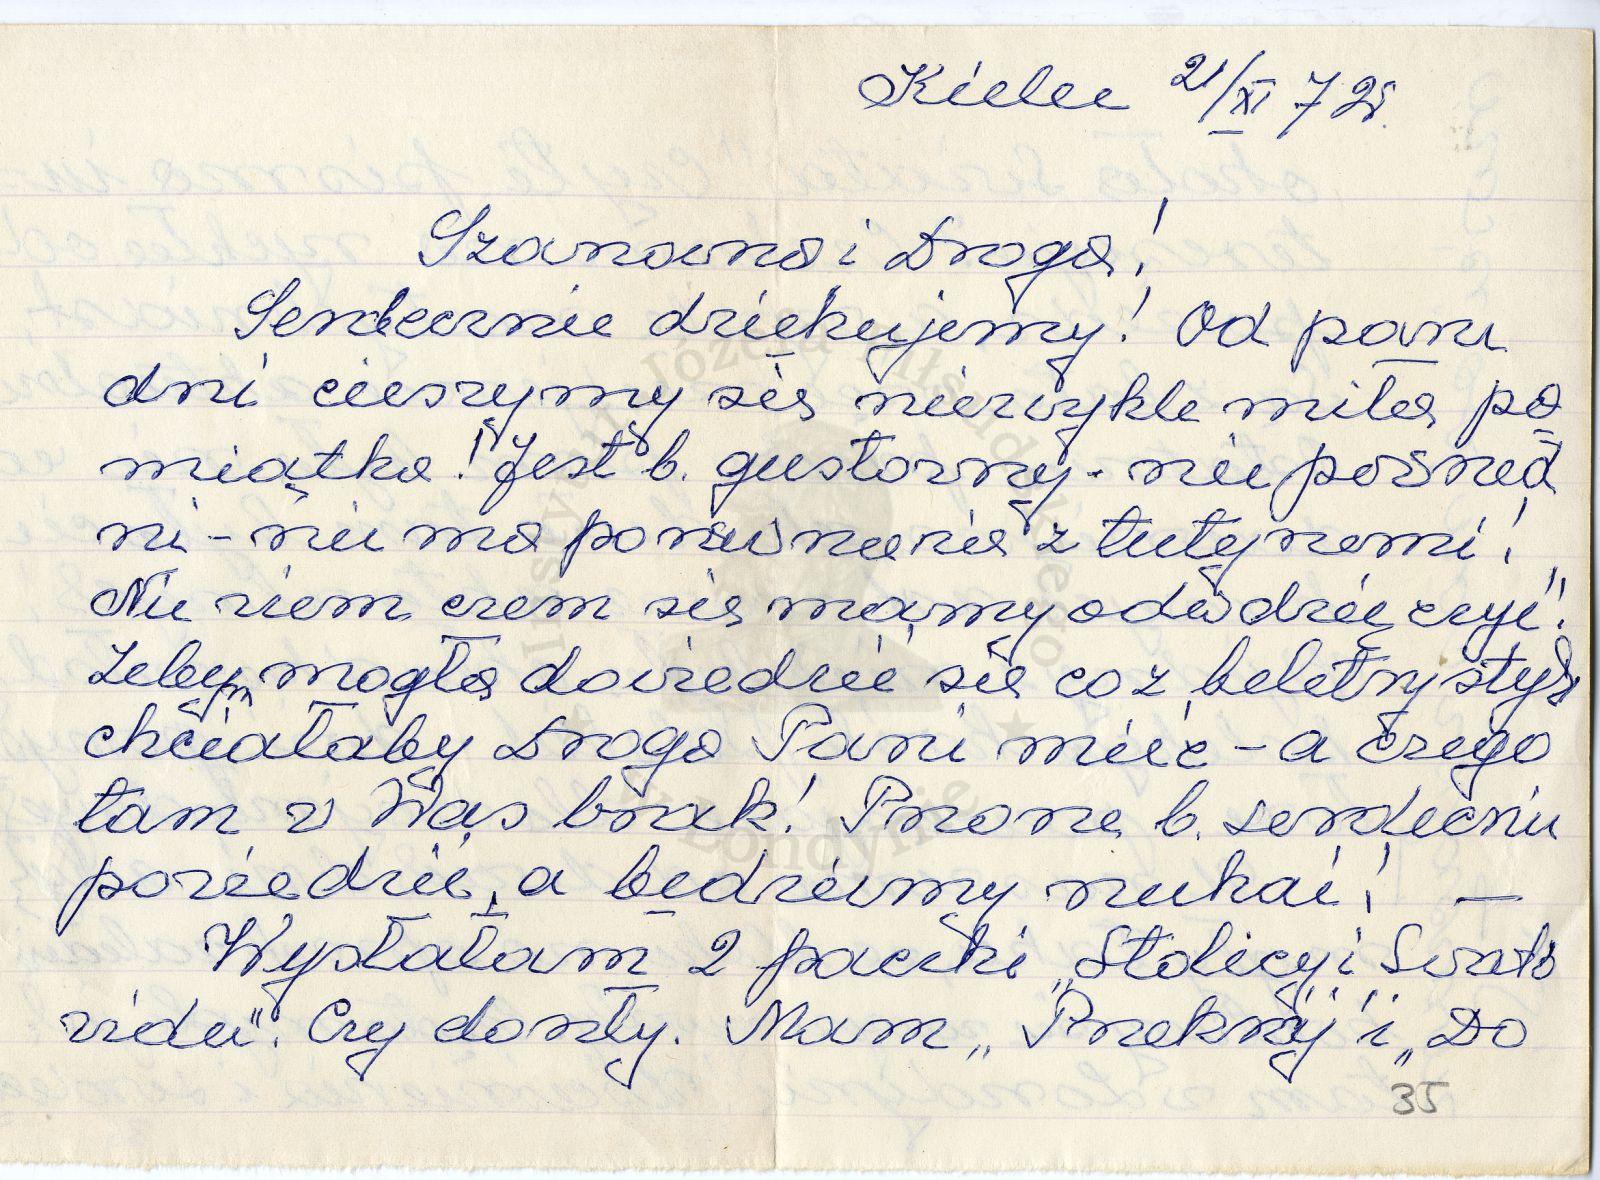 Kielce 21/XI 72r.
Szanowna i Droga!
Serdecznie dziękujemy! Od paru
dni cieszymy się niezwykle miłą pa
miątką! Jest b. gustowny - nie pośred
ni - nie ma porównania z tutejszemi!
Nie wiem czem się mamy odwdzięczyć!
Żebym mogła dowiedzieć się co z beletrystyki
chciałaby Droga Pani mieć - a czego
tam u Was brak! Proszę b. serdecznie
powiedzieć, a będziemy szukać! —
Wysłałam 2 paczki „Stolicy i Świato
widu". Czy doszły. Mam „Przekrój" i „Do
35
Instytut Józefa Piłsudskiego w Londynie